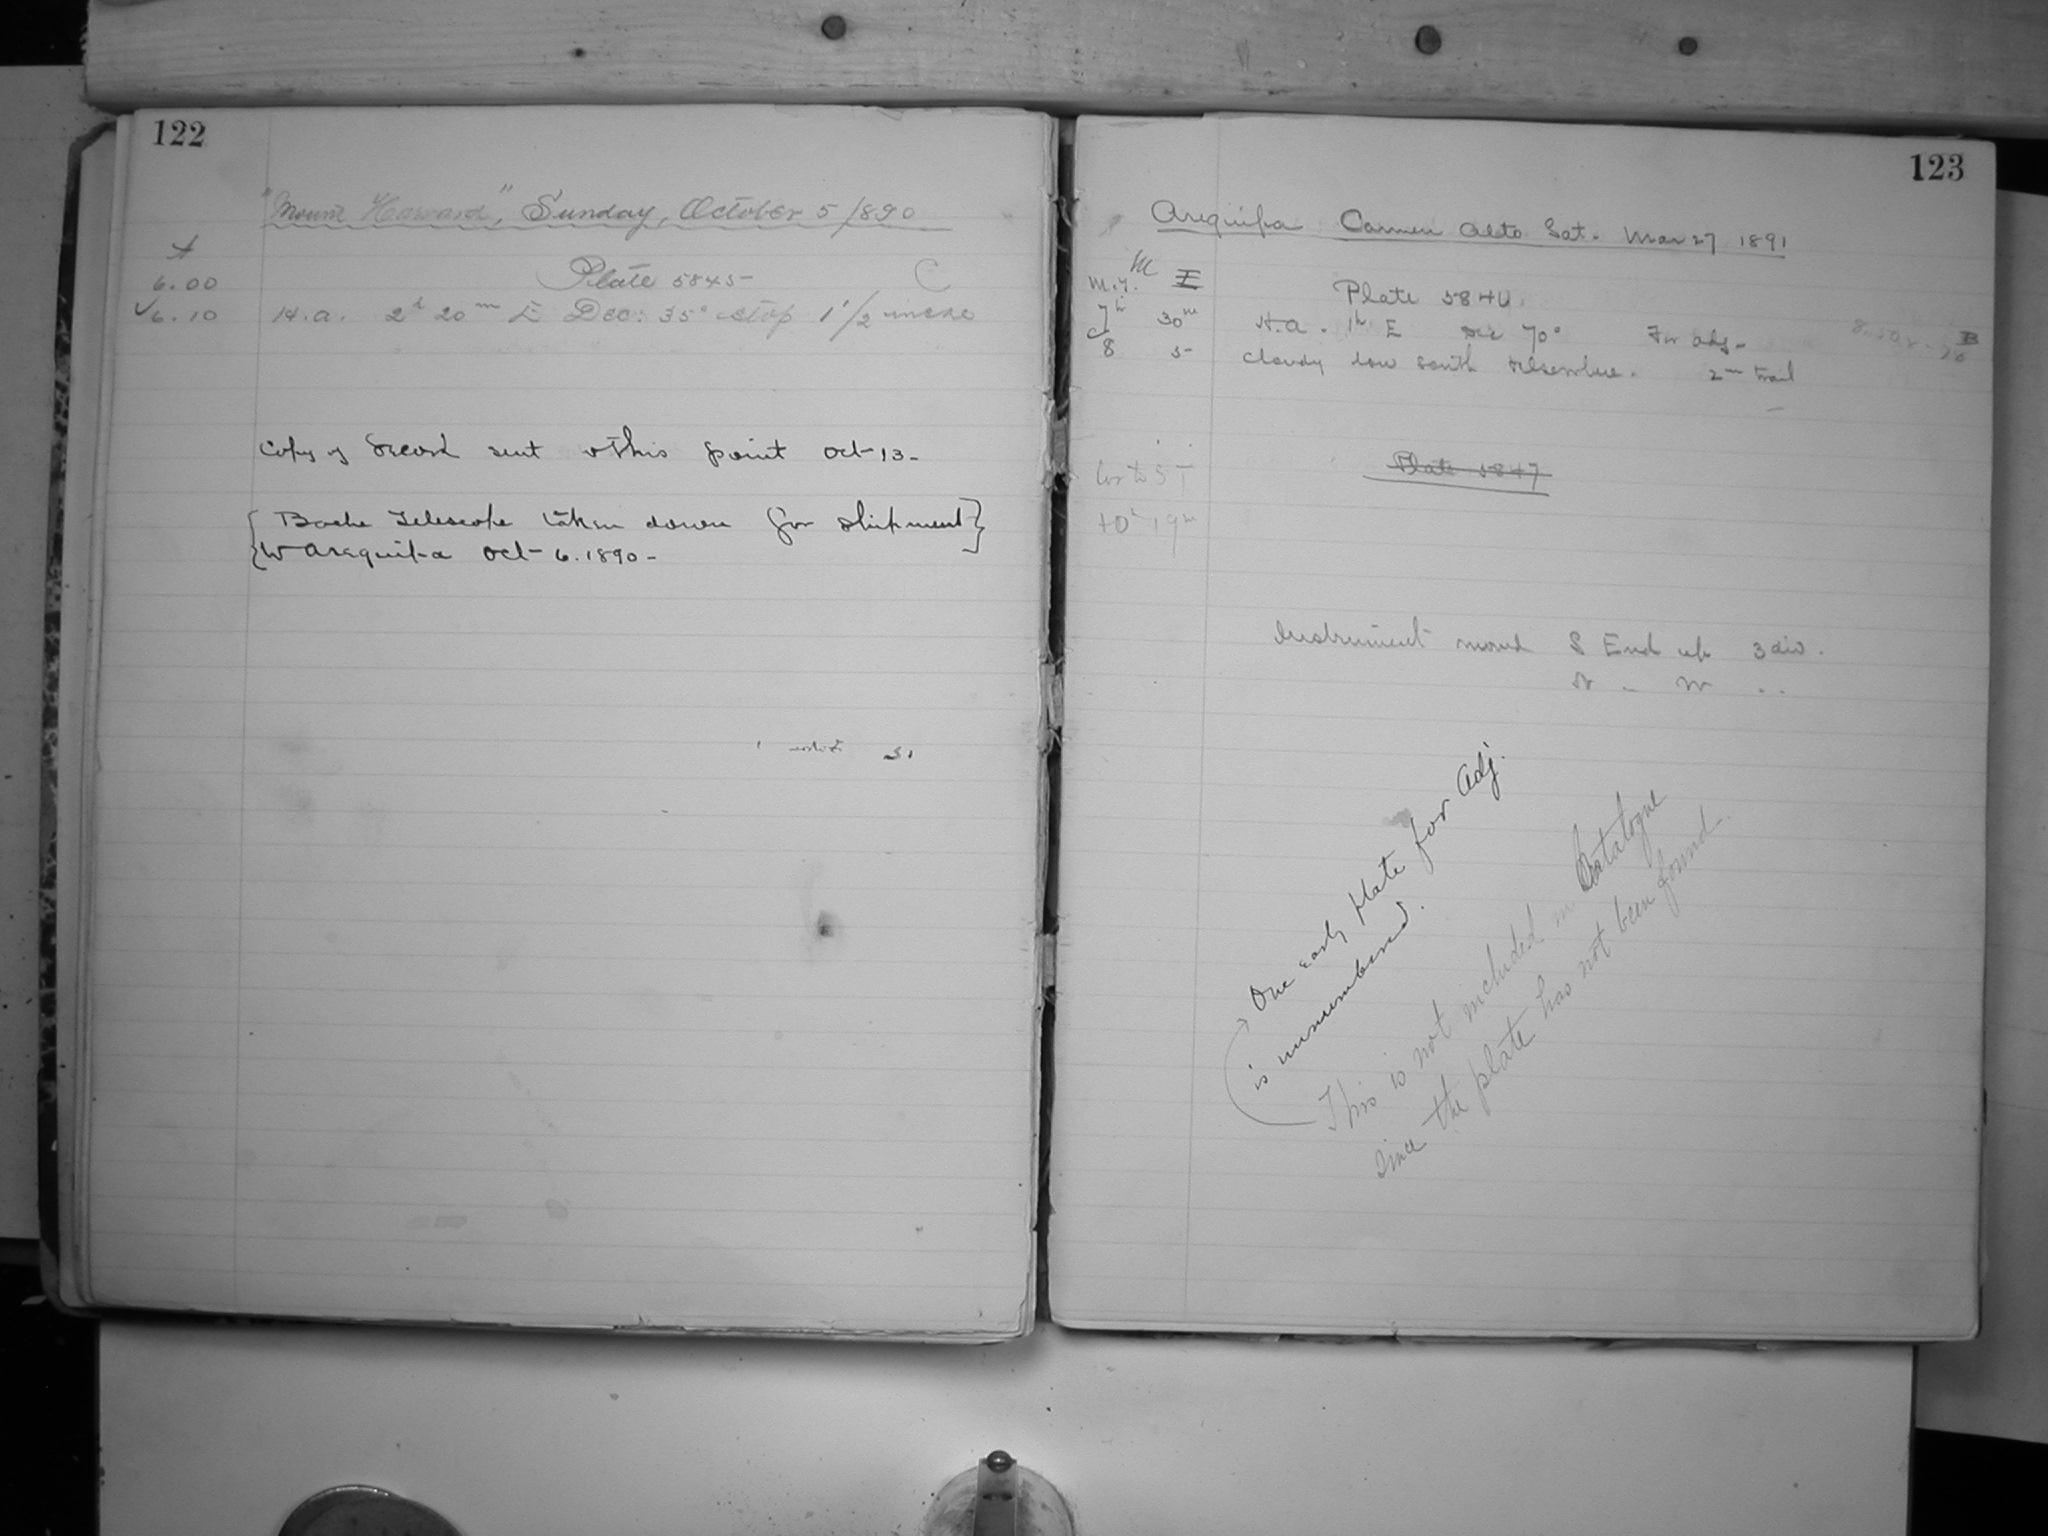 122
"Mount Harvard", Sunday, October 5 1890
A
6.00 Plate 5845 C
✓6.10 H.a. 2h 20m E Dec: 35° stop 1 1/2 inche
Copy of record sent to this point Oct 13-
{Bache Telescope taken down for shipment}
{to Arequipa Oct 6. 1890-
31
123
Arequipa Carmen Alto Sat. Mar 27 1891
M.T. M I
Plate 584
7h 30m H.a. 1h E Dec 70° For adj-
8 5 cloudy low south
2m trail
Plate 5847
+0h 19m
Instrument moved S End up 3 div.
One early plate for Adj.
is unnumbered.
This is not included in Catalogue
since the plate has not been found.